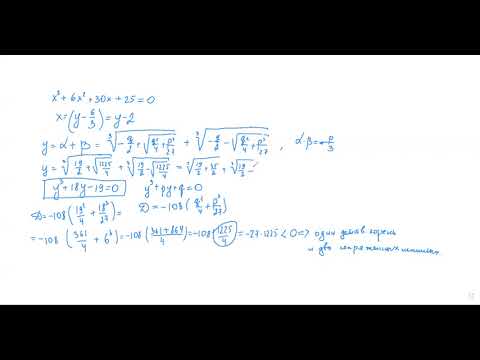 x³ + 6x² + 30x + 25 = 0
x = (y - 6/3) = y - 2
y = α + β = ∛(-q/2 + √(q²/4 + p³/27)) + ∛(-q/2 - √(q²/4 + p³/27)), α·β = -p/3
y = ∛(19/2 + √(1225/4)) + ∛(19/2 - √(1225/4)) = ∛(19/2 + 35/2) + ∛(19/2 -
y³ + 18y - 19 = 0 y³ + py + q = 0
D = -108(19²/4 + 18³/27) = D = -108(q²/4 + p³/27)
= -108(361/4 + 6³) = -108(361 + 864/4) = -108 · 1225/4 = -27·1225 < 0 => один действ корень
и два сопряженных мнимых.